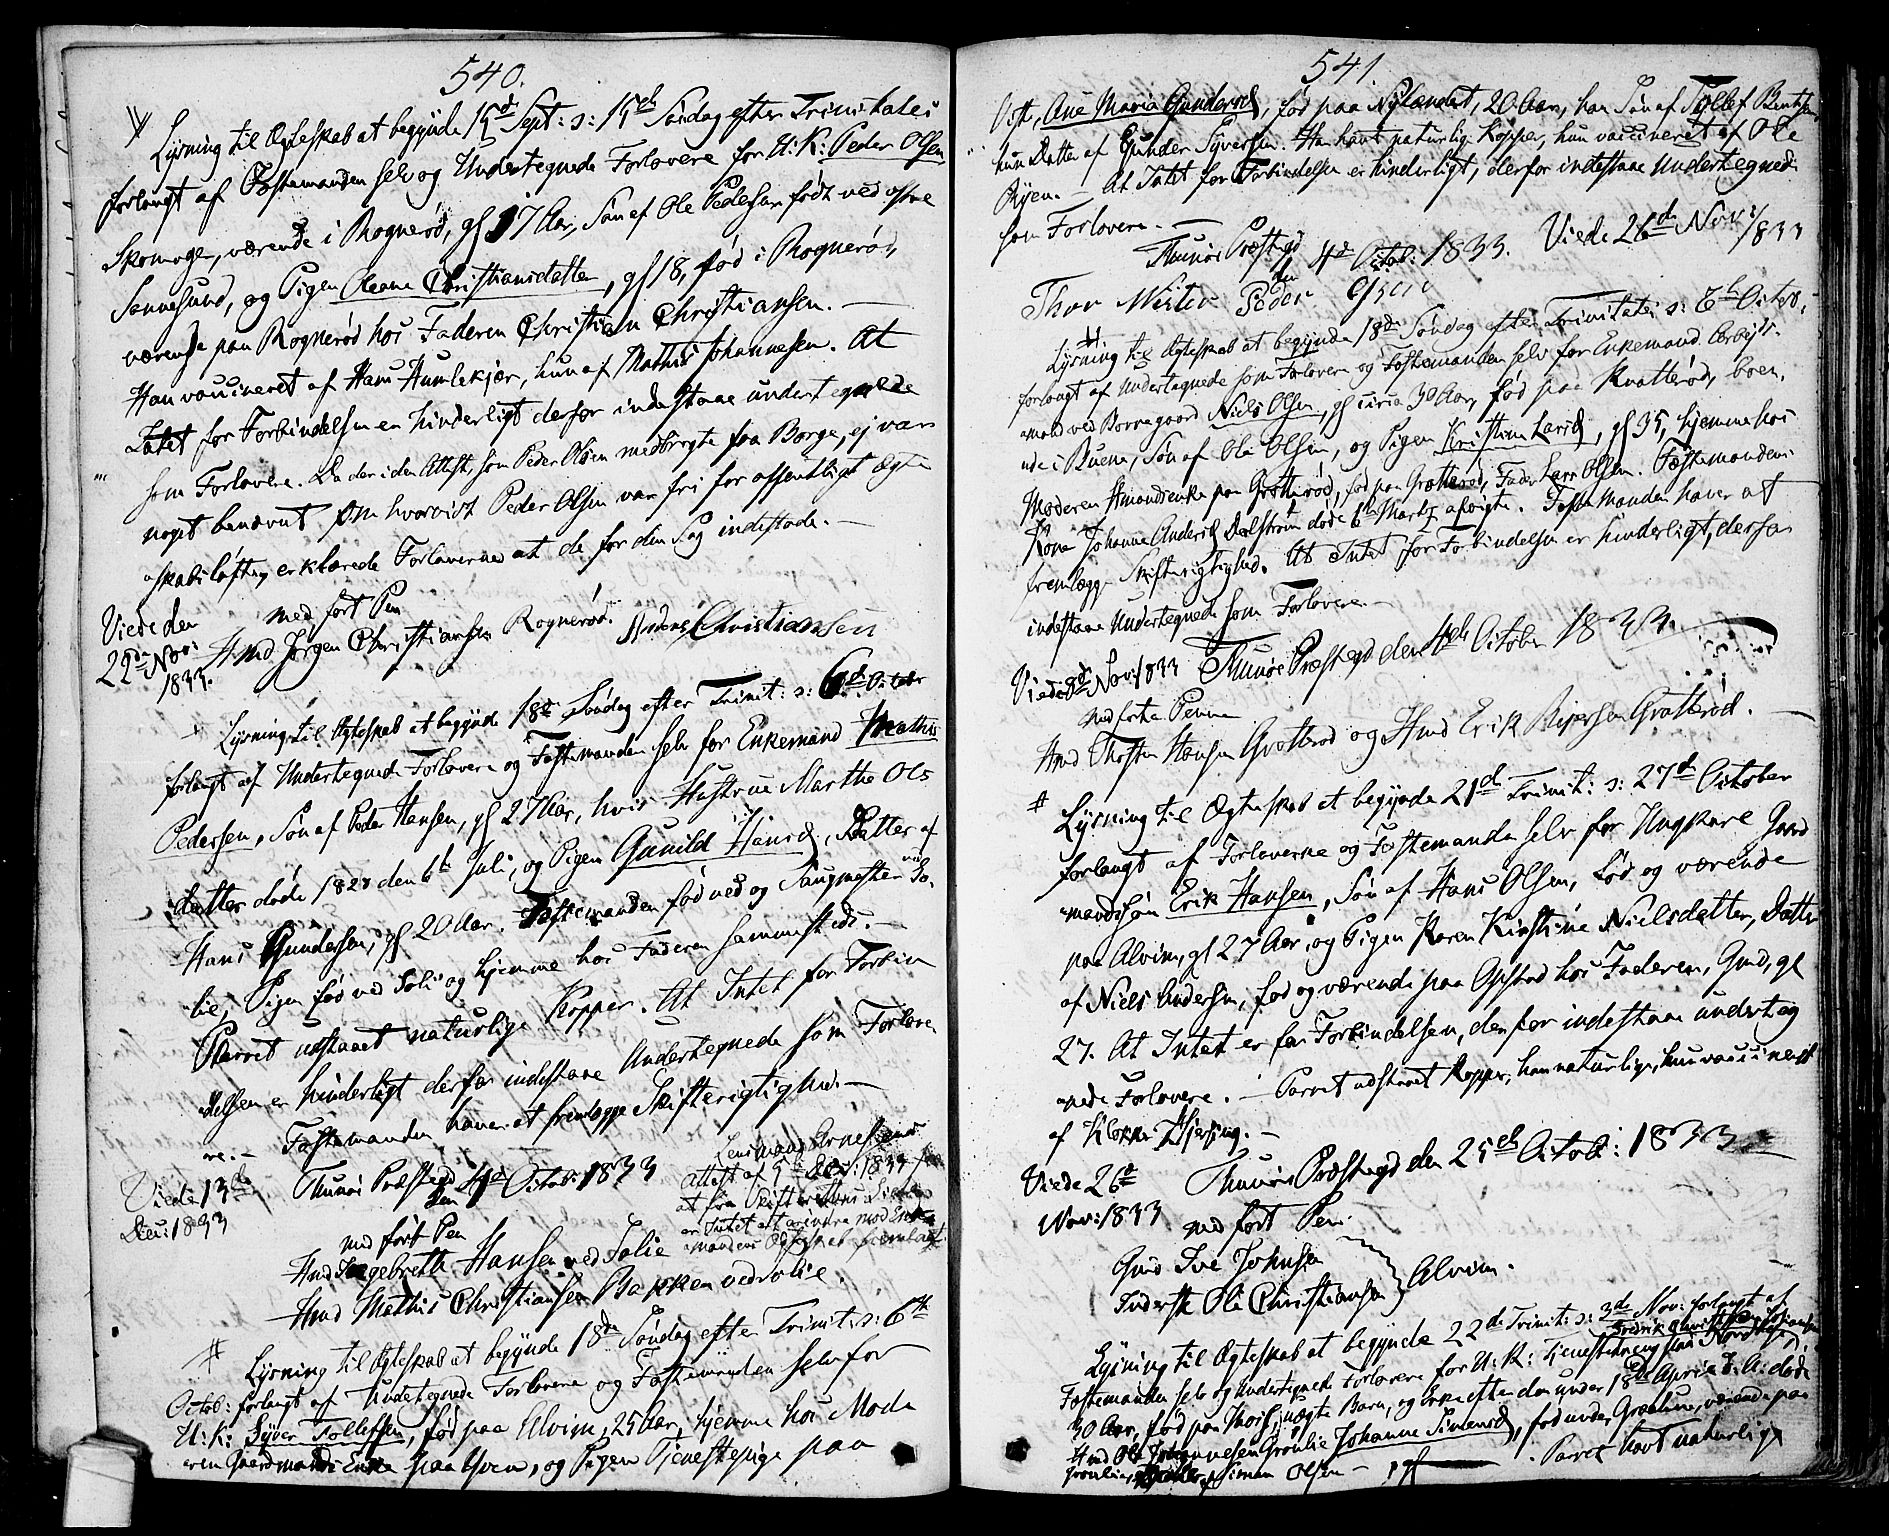 540.
Lysning til Ægteskab at begynde 15d Sept: s: 15de Søndag efter Trinitatis
forlangt af Fæstemanden selv og Undertegnede Forlovere for U: K: Peder Olsen
Skomager, værende i Rognerød, gl 17 Aar, Søn af Ole Pedersen født ved østre
Sannesund, og Pigen Oleane Christiansdatter, gl 18, fød i Rognerød,
værende paa Rognerød hos Faderen Christian Christiansen. —
Han vaccineret af Hans Humlekjær, hun af Mathis Johannesen. At
Intet for Forbindelsen er hinderligt derfor indestaae undertegnede
som Forlovere. Da der i den Attest, som Peder Olsen medbragte fra Borge, ej var
noget benævnt om hvorvidt Peder Olsen var fri for offentligt Ægte
skabsløfte, erklærede Forloverne at de for den Sag indestode. —
Viede den
22de Nov:
1833.
med ført Pen
Hmd Jørgen Christiansen Rognerød. Anders Christiansen
Lysning til Ægteskab at begynde 18de Søndag efter Trinit: s: 6d Octobr
forlangt af Undertegnede Forlovere og Fæstemanden selv for Enkemand Mathis
Pedersen, Søn af Peder Hansen, gl 27 Aar, hvis Hustrue Marthe Ols
datter døde 1828 den 6te Juli, og Pigen Gunild Hansd, Datter af
Hans Gundersen, gl 20 Aar. Fæstemanden fød ved og Saugmester ved So-
lie, Pigen fød ved Solie og hjemme hos Faderen sammesteds. —
Parret udstaaet naturlige Kopper. At Intet for Forbin
delsen er hinderligt derfor indestaae Undertegnede som Forlove
re. — Fæstemanden haver at fremlægge Skifterigtighed. —
Thunøe Præstegd den 4de Octob: 1833
Lensmand Arnesens
attest af 5te Dec: 1833
at fra Skifterettens Side
er Intet at erindre mod Enke
mandens Ægteskab fremlagt.
Viede 13de
Dec: 1833
med ført Pen
Hmd Ingebreth Hansen ved Solie
Hmd Mathis Christiansen Bakken ved Solie.
Lysning til Ægteskab at begynde 18de Søndag efter Trinit: s: 6te
Octob: forlangt af Undertegnede Forlovere og Fæstemanden selv for
U: K: Syver Tollefsen, fød paa Alvim, 25 Aar, hjemme hos Mode
ren Gaardmands Enke paa Opsen, og Pigen Tjenestepige paa
541.
Ost, Ane Maria Gundersd, fød paa Nylandet, 20 Aar, han Søn af Tollef Bentsen
hun Datter af Gunder Syversen. Han havt naturlige Kopper, hun vaccineret af Ole
Ryen. — At Intet for Forbindelsen er hinderligt, derfor indestaae Undertegnede
som Forlovere. —
Thunøe Præstegd den 4de Octob: 1833. Viede 26de Nov: 1833
Thor Peder
Lysning til Ægteskab at begynde 18de Søndag efter Trinitatis s: 6te Octob:
forlangt af Undertegnede som Forlovere og Fæstemanden selv for Enkemand Arbejds-
mand ved Borregaard Niels Olsen, gl circa 30 Aar, fød paa Kvatterød, boen-
de i Buene, Søn af Ole Olsen, og Pigen Kristine Larsd, gl 35, hjemme hos
Moderen Hmandsenke paa Grotterød, fød paa Grotterød, Fader Lars Olsen. Fæstemandens
Kone Johanne Andersd Dalstrøm døde 6te Martz afvigte. Fæstemanden haver at
fremlægge Skifterigtighed. At Intet for Forbindelsen er hinderligt, derfor
indestaae Undertegnede som Forlovere —
Viede 8de Nov: 1833 Thunøe Præstegd den 4de October 1833.
med førte Penne
Hmd Thosten Hansen Grotterød og Hmd Erik Bijersen Grotterød. —
Lysning til Ægteskab at begynde 21de Trinit: s: 27de October
forlangt af Forloverne og Fæstemanden selv for Ungkarl Gaard
mandssøn Erik Hansen, Søn af Hans Olsen, fød og værende
paa Alvim, gl 27 Aar, og Pigen Karen Kirstine Nielsdatter, Datter
af Niels Andersen, fød og værende paa Opstad hos Faderen, Gmd, gl
27. At Intet er for Forbindelsen, derfor indestaae underteg
nede Forlovere. — Parret udstaaet Kopper, han naturlige, hun vaccineret
af Klokker Hjersing. —
Viede 26de
Nov: 1833
Thunøe Præstegd den 25de Octob: 1833
med ført Pen:
Gmd Ive Johnsen
Inderst Ole Christiansen Alvim.
Lysning til Ægteskab at begynde 22de Trinit: s: 3de Nov: forlangt af
Fæstemanden selv og Undertegnede Forlovere for U: K: Tjenestedreng paa
30 Aar, fød paa uægte Barn, og Enke efter den under 18de April d: A: døde
Hmd Ole Johannesen Grønlie Johanne Simensd, fød under Grønlien, værende paa
Grønlien, Datter af Simen Olsen — Parret havt naturlige